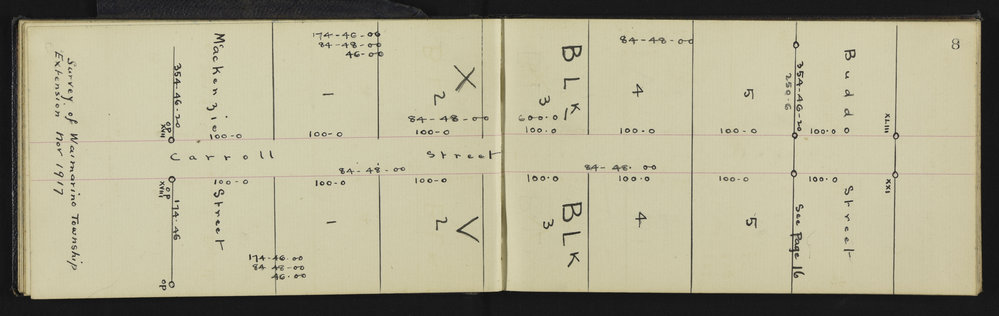 8
Survey of Waimarino Township
Extension Nov 1917
354-46-20
OP
XVII
Mackenzie
100-0
174-46-00
84-48-00
46-00
1
100-0
X
2
84-48-00
100-0
BLK
3
600.0
100.0
84-48-00
4
100.0
5
100-0
354-46-20
250.6
Budd
100.0
XLIII
Carroll Street
84-48-00
84-48-00
OP
XVIII
174-46
OP
100-0
Street
100-0
1
174-46-00
84-48-00
46-00
100-0
2
V
100.0
BLK
3
100.0
4
100-0
5
See Page 16
100.0
Street
XXI